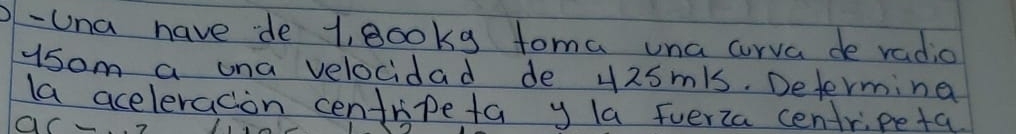 -Una nave de 1,800kg toma una curva de radio
150m a una velocidad de 425m/s. Determina
la aceleración centripeta y la fuerza centripeta.
ac =